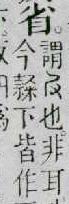 省
謂也非耳
今隸下皆作